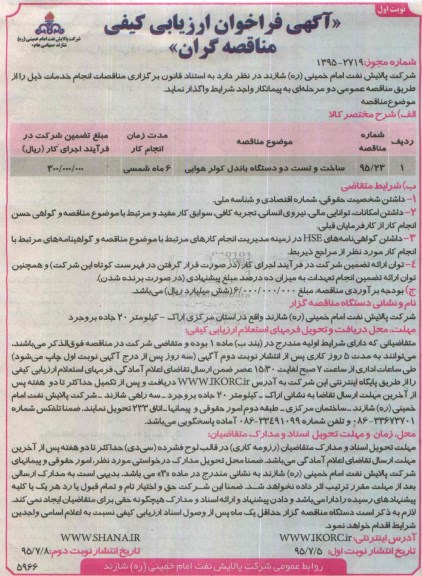 نوبت اول
«آگهی فراخوان ارزیابی کیفی
مناقصه گران»
شرکت پالایش نفت امام خمینی (ره)
شازند (سهامی عام)
شماره مجوز: ۲۷۱۹-۱۳۹۵
شرکت پالایش نفت امام خمینی (ره) شازند در نظر دارد به استناد قانون برگزاری مناقصات انجام خدمات ذیل را از
طریق مناقصه عمومی دو مرحله‌ای به پیمانکار واجد شرایط واگذار نماید.
موضوع مناقصه
الف) شرح مختصر کالا
ردیف
شماره مناقصه
موضوع مناقصه
مدت زمان انجام کار
مبلغ تضمین شرکت در فرآیند اجرای کار (ریال)
۱
۹۵/۲۳
ساخت و تست دو دستگاه باندل کولر هوایی
۶ ماه شمسی
۳۰۰/۰۰۰/۰۰۰
ب) شرایط متقاضی
۱- داشتن شخصیت حقوقی، شماره اقتصادی و شناسه ملی.
۲- داشتن امکانات، توانایی مالی، نیروی انسانی، تجربه کافی، سوابق کار مفید و مرتبط با موضوع مناقصه و گواهی حسن
انجام کار از کارفرمایان قبلی.
۳- داشتن گواهی‌نامه‌های HSE در زمینه مدیریت انجام کارهای مرتبط با موضوع مناقصه و گواهینامه‌های مرتبط با
انجام کار مورد نظر از مراجع ذیربط.
۴- توان ارائه تضمین شرکت در فرآیند اجرای کار (در صورت قرار گرفتن در فهرست کوتاه این شرکت) و همچنین
توان ارائه تضمین انجام تعهدات به میزان ده درصد مبلغ پیشنهادی (در صورت برنده شدن).
ج) بودجه برآوردی مناقصه، مبلغ ۶/۰۰۰/۰۰۰/۰۰۰ (شش میلیارد ریال) می‌باشد.
نام و نشانی دستگاه مناقصه گزار
شرکت پالایش نفت امام خمینی (ره) شازند واقع در استان مرکزی اراک - کیلومتر ۲۰ جاده بروجرد
مهلت، محل دریافت و تحویل فرمهای استعلام ارزیابی کیفی:
متقاضیانی که دارای شرایط اولیه مندرج در (بند ب) ماده ۱ بوده و متقاضی شرکت در مناقصه فوق‌الذکر می‌باشند،
می‌توانند به مدت ۵ روز کاری پس از انتشار نوبت دوم آگهی (سه روز پس از درج آگهی نوبت اول چاپ می‌شود)
طی ساعات اداری از ساعت ۷ صبح لغایت ۱۵:۳۰ عصر ضمن ارسال تقاضای اعلام آمادگی، فرمهای استعلام ارزیابی کیفی
را از طریق پایگاه اینترنتی این شرکت به آدرس WWW.IKORC.IR دریافت و پس از تکمیل حداکثر تا دو هفته پس
از آخرین مهلت ارسال تقاضا به نشانی اراک - کیلومتر ۲۰ جاده بروجرد - سه راهی شازند - شرکت پالایش نفت امام
خمینی (ره) شازند - ساختمان مرکزی - طبقه دوم امور حقوقی و پیمانها - اتاق ۲۳۳ تحویل نمایند. ضمنا تلفکس شماره
۳۳۶۷۳۷۰۱-۰۸۶ و تلفن شماره ۳۳۴۹۱۰۹۹-۰۸۶ آماده پاسخگویی می‌باشد.
محل، زمان و مهلت تحویل اسناد و مدارک متقاضیان:
مهلت تحویل اسناد و مدارک متقاضیان (رزومه کاری) در قالب لوح فشرده (سی‌دی) حداکثر تا دو هفته پس از آخرین
مهلت ارسال تقاضای اعلام آمادگی می‌باشد. ضمنا محل تحویل مدارک درخواستی مورد نظر، امور حقوقی و پیمانهای
شرکت پالایش نفت امام خمینی (ره) شازند به نشانی مندرج در ماده «۳» می باشد. بدیهی است به مدارک ارسالی
بعد از مهلت مقرر ترتیب اثر داده نخواهد شد. ضمنا این شرکت حق و اختیار تام و تمام قبول یا رد هر یک یا کلیه
پیشنهادهای رسیده را دارا می‌باشد و دادن پیشنهاد و ارائه اسناد و مدارک هیچگونه حقی برای متقاضیان ایجاد نمی کند.
لازم به ذکر است دستگاه مناقصه گزار حداقل یک ماه پس از وصول اسناد ارزیابی کیفی نسبت به اعلام اسامی واجدین
شرایط اقدام خواهد نمود.
آدرس اینترنتی: WWW.IKORC.IR
WWW.SHANA.IR
تاریخ انتشار نوبت اول: ۹۵/۷/۵
تاریخ انتشار نوبت دوم: ۹۵/۷/۸
روابط عمومی شرکت پالایش نفت امام خمینی (ره) شازند
۵۹۶۶